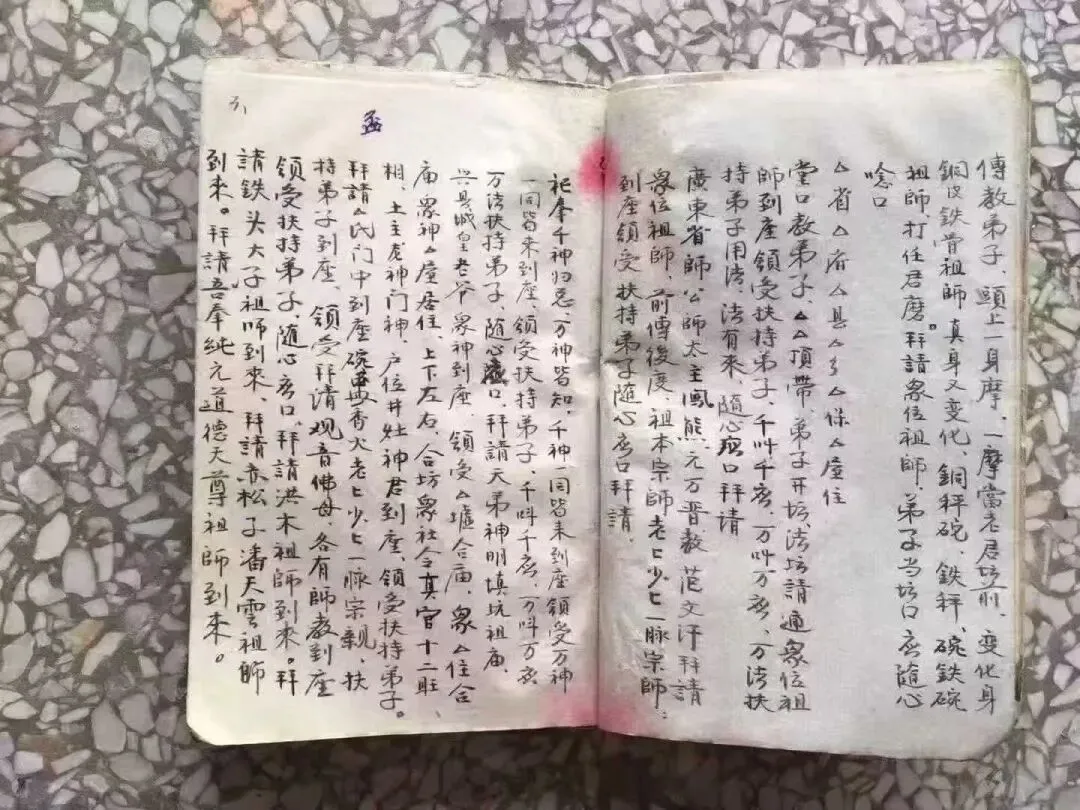 傳教弟子、頭上一身摩、一摩當老君坛前、变化身
銅皮铁骨祖師、真身又变化、銅秤碗、鉄秤、碗鉄碗
祖師、打任君磨。拜請衆位祖師、弟子当坛口应隨心
唸口
△省△府△县△乡△保△屋住
堂口教弟子、△△頂帶、弟子开坛、法坛請通衆位祖
師到座領受扶持弟子、千叫千应、一万叫万应、万法扶
持弟子用法、法有来、随心应口拜請
廣東省師公師太主風熊、元万晋教范文汗拜請
衆位祖師、前傳後度、祖本宗師老匕少匕一脉宗師：
到座領受扶持弟子隨心应口拜請、
祀奉千神归忌、万神皆知、千神一同皆来到座領受万神
一同皆来到座、領受扶持弟子、千叫千应、一万叫万应
万法扶持弟子、随心应口、拜請天弟神明填坑祖庙、
兴县城皇老爷衆神到座、領受△墟合庙、衆△住合
庙衆神△屋居住、上下左右、合坊衆社令真官十二旺
相、土主龙神门神、户位井灶神君到座、領受扶持弟子。
拜請△氏门中到座碗香火老匕少匕一脉宗親、扶
持弟子到座、領受拜请观音佛母、各有師教到座
領受扶持弟子、随心应口、拜請洪木祖師到來。拜
請鉄头太子祖师到來、拜請赤松子潘天雲祖師
到來。拜請吾奉純元道德天尊祖師到來。
孟